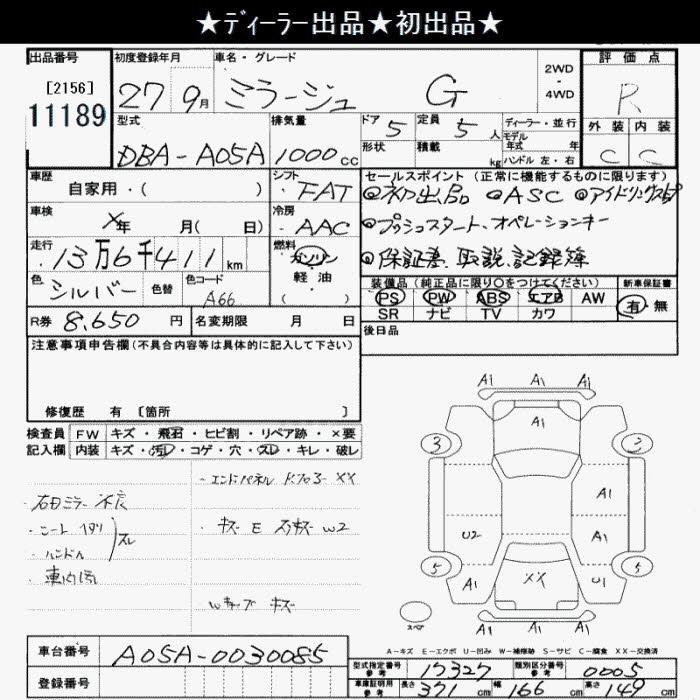 ★ディーラー出品★初出品★
出品番号 初度登録年月 車名・グレード 2WD・4WD 評価点
[2156] 11189 27 9月 ミラージュ G R
型式 排気量 ドア 5 定員 5人 ディーラー・並行 外装 内装
DBA-A05A 1000cc 形状 積載 kg モデル年式 年 ハンドル 左・右 C C
車歴 シフト セールスポイント(正常に機能するものに限ります)
自家用・( ) FAT ◎初出品 ◎ASC ◎アイドリングストップ
車検 X年 月( 日) 冷房 AAC ◎プッシュスタート、オペレーションキー
走行 13万6千411km 燃料 ガソリン・軽油・( ) ◎保証書、取説、記録簿
色 シルバー 色替 色コード A66
装備品(純正品に限り○をつけてください) 新車保証書
PS PW ABS エアB AW 有・無
SR ナビ TV カワ
R券 8,650円 名変期限 月 日 後日品
注意事項申告欄(不具合内容等は具体的に記入して下さい)
修復歴 有 [箇所 ]
検査員 FW キズ・飛石・ヒビ割・リペア跡・×要
記入欄 内装 キズ・汚レ・コゲ・穴・スレ・キレ・破レ
・エンドパネル XX
・シート
・ハンドル スレ
・車内
キズ E W2
Wキャップ キズ
A1 A1 A1
A1
3 2
A1
U2 A1
5 5
A1 XX U1
A1 A1 A1
スペア
A-キズ E-エクボ U-凹み W-補修跡 S-サビ C-腐食 XX-交換済
車台番号 A05A-0030085
登録番号
型式指定番号 参考 17327 類別区分番号 参考 0005
車庫証明用 参考 長さ 371cm 幅 166cm 高さ 149cm